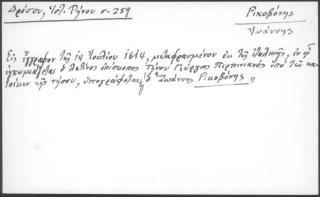 Δρόσου, Ἱστ. Τήνου σ. 259
Ρικοβόνης
Ἰωάννης
Εἰς ἔγγραφον τῆς 14 Ἰουλίου 1614, μεταφρασμένον ἐκ τῆς ἰταλικῆς, ἐν ᾧ
ἐγκωμιάζεται ὁ Λατῖνος ἐπίσκοπος Τήνου Γεώργιος Περπινιανός ὑπό τῶν κα-
τοίκων τῆς νήσου, ὑπογράφεται ὁ Ἰωάννης Ρικοβόνης